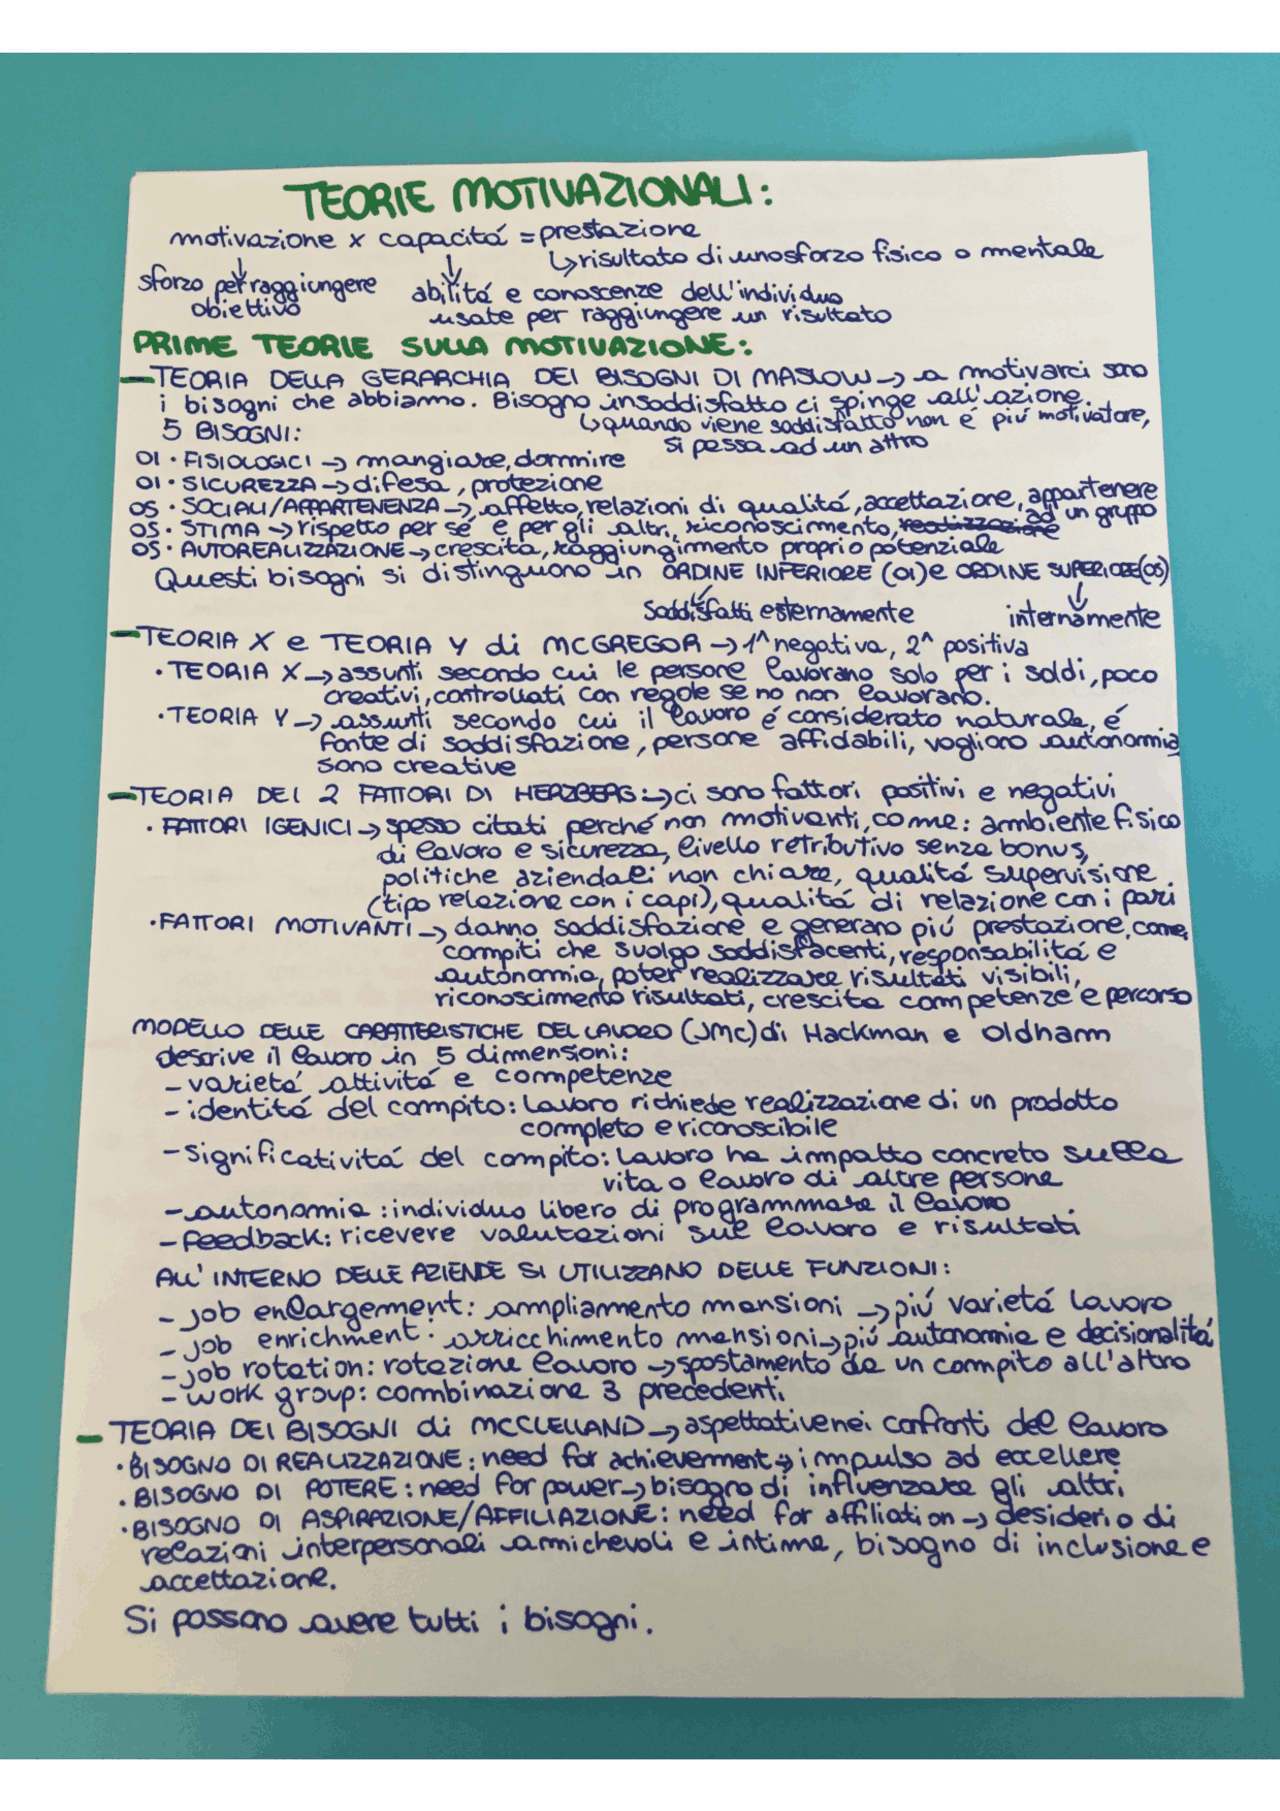 TEORIE MOTIVAZIONALI:
motivazione x capacitá = prestazione
↳ risultato di uno sforzo fisico o mentale
sforzo per raggiungere
obiettivo
abilitá e conoscenze dell'individuo
usate per raggiungere un risultato
PRIME TEORIE SULLA MOTIVAZIONE:
- TEORIA DELLA GERARCHIA DEI BISOGNI DI MASLOW → a motivarci sono
i bisogni che abbiamo. Bisogno insoddisfatto ci spinge all'azione.
↳ quando viene soddisfatto non é piú motivatore,
si passa ad un altro
5 BISOGNI:
OI · FISIOLOGICI → mangiare, dormire
OI · SICUREZZA → difesa, protezione
OS · SOCIALI/APPARTENENZA → affetto, relazioni di qualitá, accettazione, appartenere
ad un gruppo
OS · STIMA → rispetto per sé e per gli altri, riconoscimento, realizzazione
OS · AUTOREALIZZAZIONE → crescita, raggiungimento proprio potenziale
Questi bisogni si distinguono in ORDINE INFERIORE (OI) e ORDINE SUPERIORE (OS)
Soddisfatti esternamente
internamente
- TEORIA X e TEORIA Y di MCGREGOR → 1^ negativa, 2^ positiva
· TEORIA X → assunti secondo cui le persone lavorano solo per i soldi, poco
creativi, controllati con regole se no non lavorano.
· TEORIA Y → assunti secondo cui il lavoro é considerato naturale, é
fonte di soddisfazione, persone affidabili, vogliono autonomia
sono creative
- TEORIA DEI 2 FATTORI DI HERZBERG: → ci sono fattori positivi e negativi
· FATTORI IGENICI → spesso citati perché non motivanti, come: ambiente fisico
di lavoro e sicurezza, livello retributivo senza bonus,
politiche aziendali non chiare, qualitá supervisione
(tipo relazione con i capi), qualitá di relazione con i pari
· FATTORI MOTIVANTI → danno soddisfazione e generano piú prestazione, come,
compiti che svolgo soddisfacenti, responsabilitá e
autonomia, poter realizzare risultati visibili,
riconoscimento risultati, crescita competenze e percorso
MODELLO DELLE CARATTERISTICHE DEL LAVORO (JMC) di Hackman e Oldham
descrive il lavoro in 5 dimensioni:
- varietá attivitá e competenze
- identitá del compito: Lavoro richiede realizzazione di un prodotto
completo e riconoscibile
- Significativitá del compito: Lavoro ha impatto concreto sulla
vita o lavoro di altre persone
- autonomia: individuo libero di programmare il lavoro
- feedback: ricevere valutazioni sul lavoro e risultati
ALL'INTERNO DELLE AZIENDE SI UTILIZZANO DELLE FUNZIONI:
- job enlargement: ampliamento mansioni → piú varietá lavoro
- job enrichment: arricchimento mansioni → piú autonomia e decisionalitá
- job rotation: rotazione lavoro → spostamento da un compito all'altro
- work group: combinazione 3 precedenti
- TEORIA DEI BISOGNI di MCCLELLAND → aspettative nei confronti del lavoro
· BISOGNO DI REALIZZAZIONE: need for achievement → impulso ad eccellere
· BISOGNO DI POTERE: need for power → bisogno di influenzare gli altri
· BISOGNO DI ASPIRAZIONE/AFFILIAZIONE: need for affiliation → desiderio di
relazioni interpersonali amichevoli e intime, bisogno di inclusione e
accettazione.
Si possono avere tutti i bisogni.